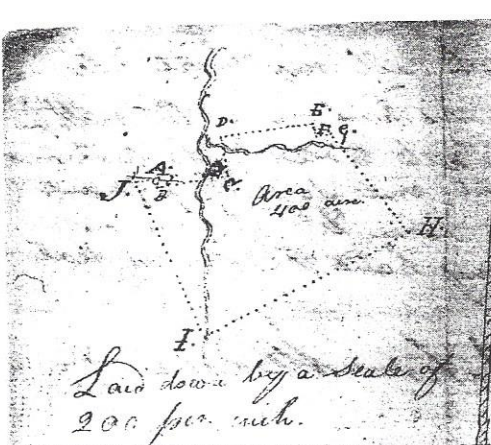 D.
E
F. G.
A.
J.
B
C.
Area
400 acres
H.
I
Laid down by a Scale of
200 per inch.